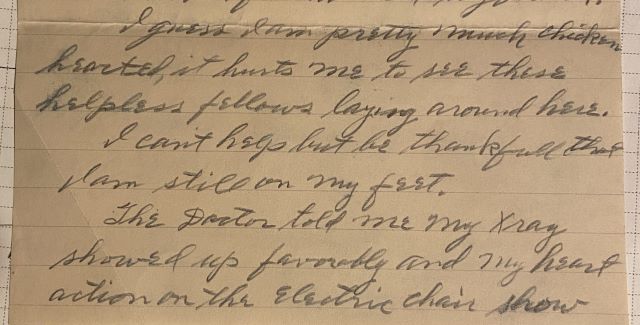 I guess I am pretty much chicken
hearted, it hurts me to see these
helpless fellows laying around here.
I cant help but be thankfull that
I am still on my feet.
The Doctor told me my Xray
showed up favorably and my heart
action on the Electric chair show